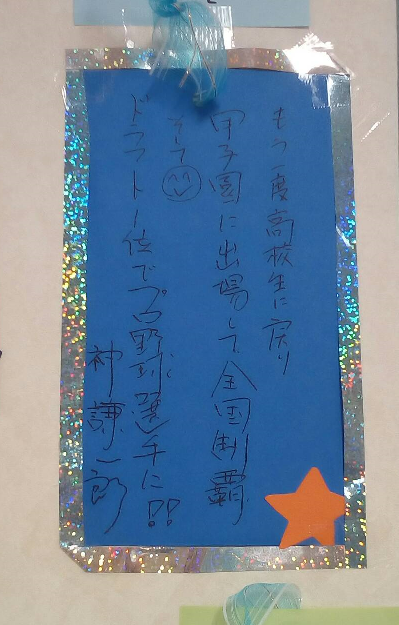 もう一度高校生に戻り
甲子園に出場して全国制覇
そして
ドラフト1位でプロ野球選手に!!
神謙二郎